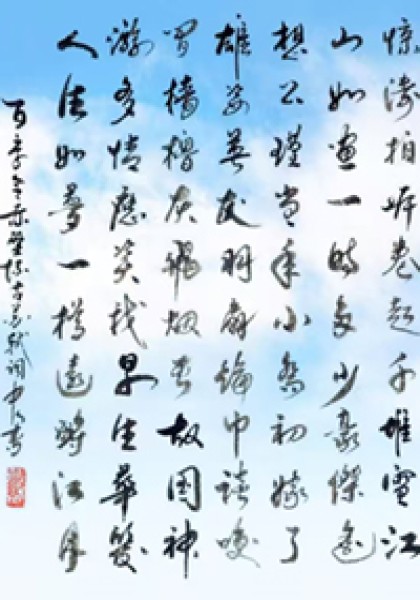 惊涛拍岸卷起千堆雪江
山如画一时多少豪傑遥
想公瑾当年小乔初嫁了
雄姿英发羽扇纶巾谈笑
间樯橹灰飞烟灭故国神
游多情应笑我早生華髮
人生如梦一樽还酹江月
百字令赤壁怀古苏轼词中石书